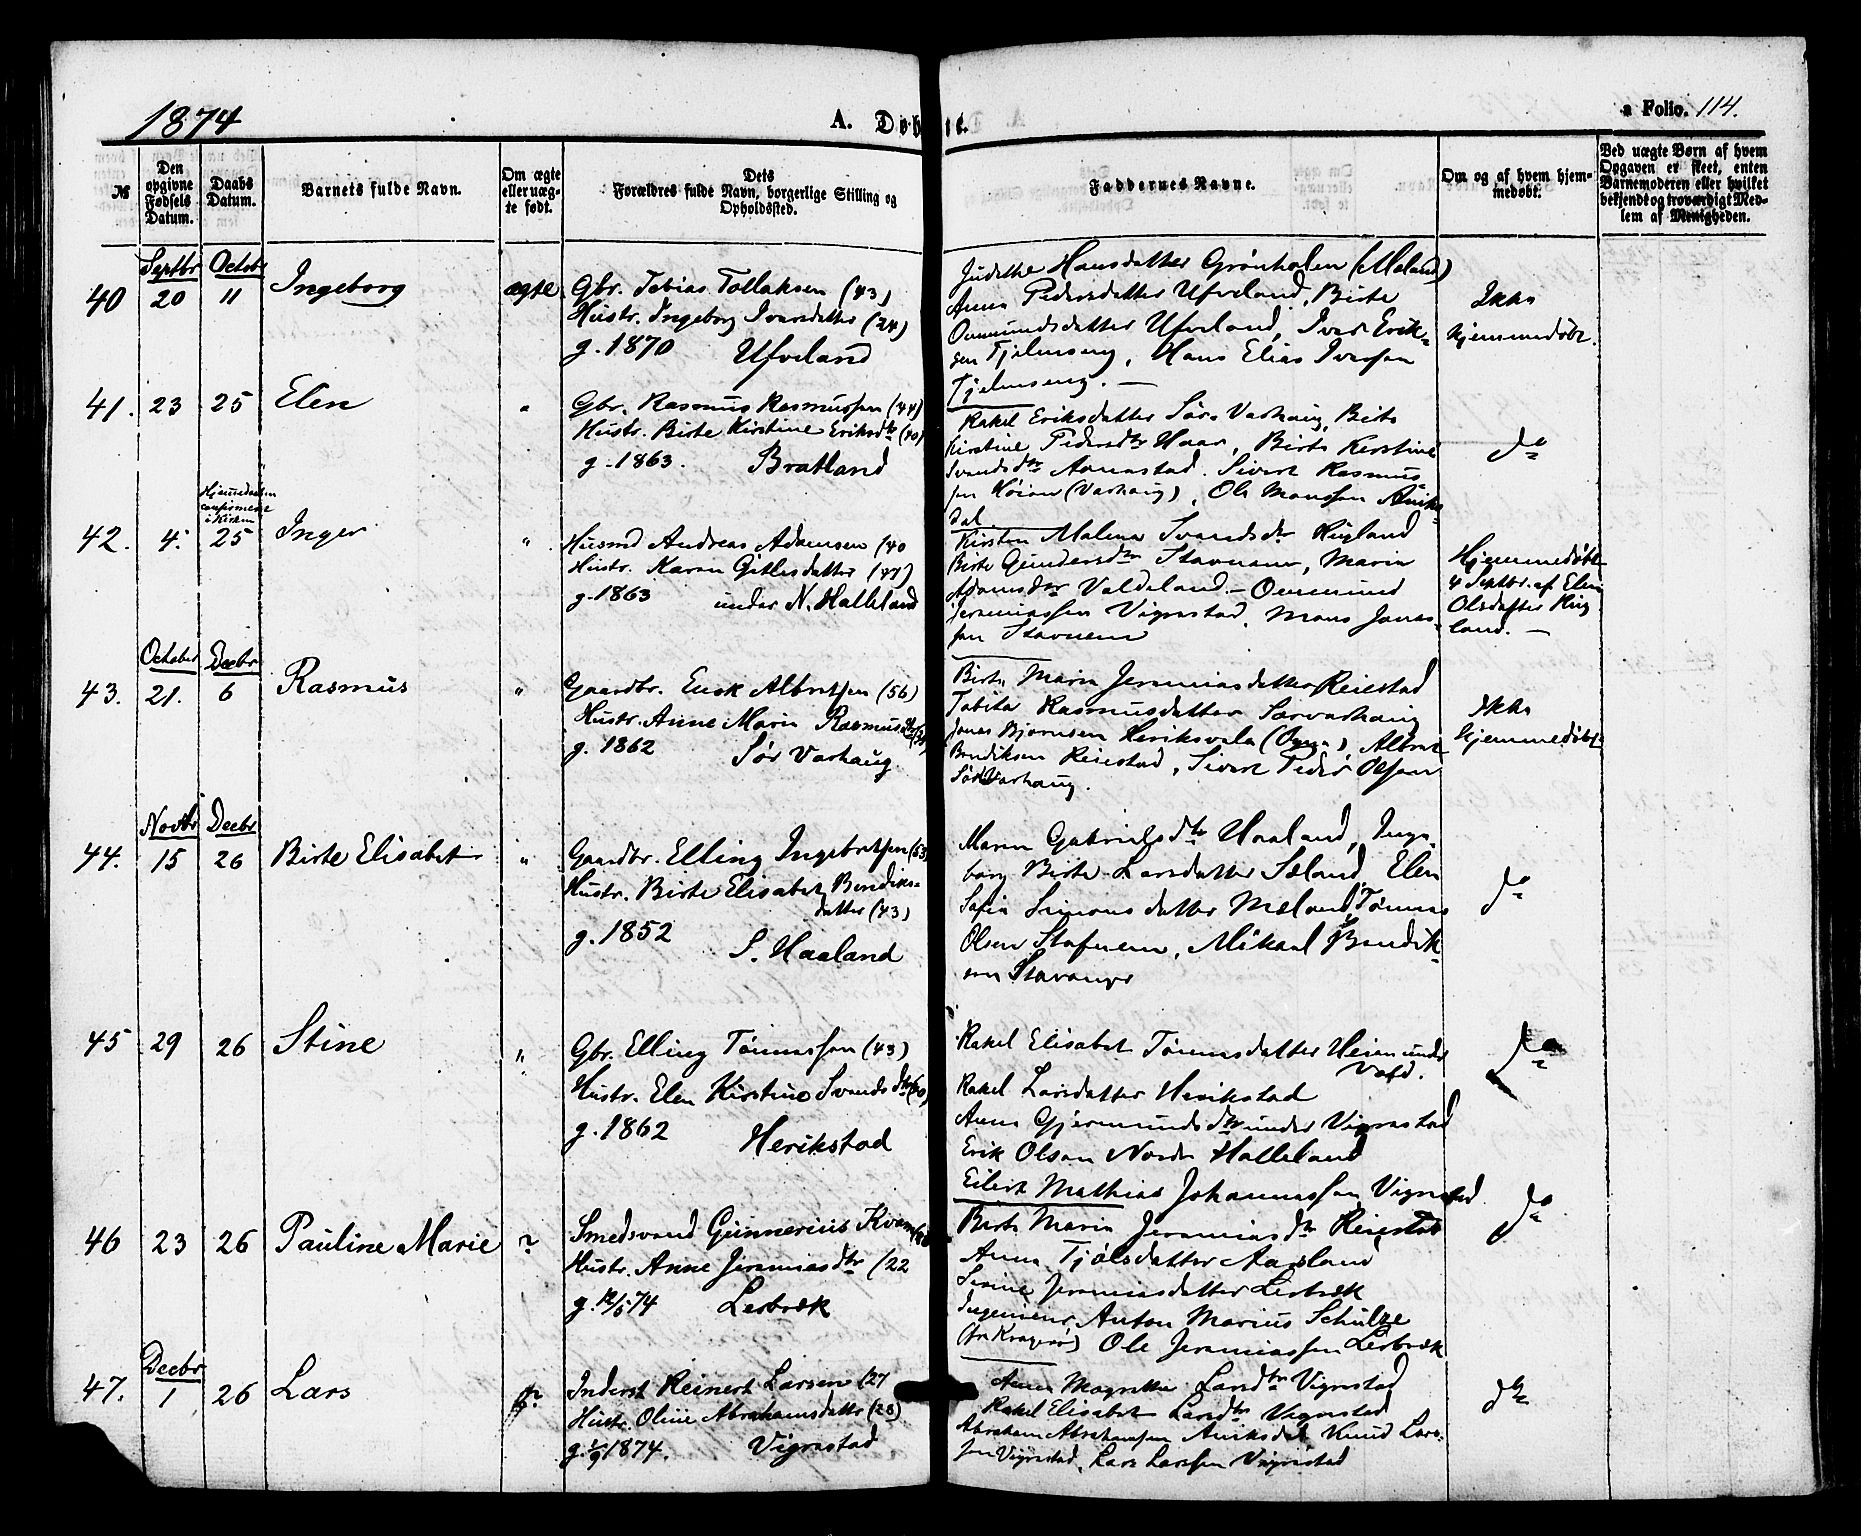 1874
A. Døbte.
a Folio. 114.
№
Den opgivne Fødsels Datum.
Daabs Datum.
Barnets fulde Navn.
Om ægte eller uægte født.
Dets Forældres fulde Navn, borgerlige Stilling og Opholdssted.
Faddernes Navne.
Om og af hvem hjemmedøbt.
Ved uægte Børn af hvem Opgaven er skeet, enten Barnemoderen eller hvilket bekjendt og troværdigt Medlem af Menigheden.
Septbr Octobr
40 20 11 Ingeborg ægte
Gbr. Tobias Tollaksen (43)
Hustr. Ingeborg Ivarsdatter (24)
g. 1870 Ufveland
Judithe Hansdatter Grønholen (Maland)
Anna Pedersdatter Ufveland, Birte
Ommundsdatter Ufveland, Ivar Erik-
sen Tjelmseng, Hans Elias Iversen
Tjelmseng. —
Ikke
hjemmedøbt.
41. 23 25 Elen "
Gbr. Rasmus Rasmussen (44)
Hustr. Birte Kirstine Eriksdtr (40)
g. 1863. Bratland
Rakel Eriksdatter Sør Varhaug, Birte
Kirstine Pedersdtr Haar, Birte Kerstine
Svendsdtr Aanestad. Sivert Rasmus-
sen Høien (Varhaug), Ole Monssen Aniks-
dal
do
Hjemmedøbten
confirmeret
i Kirken
42. 4. 25 Inger "
Husmd Andreas Adamsen (40
Hustr. Karen Gitlesdatter (47)
g. 1863 under N. Halleland
Kirsten Malena Svendsdr Hugland
Birte Gundersdtr Stavnem, Maria
Adamsdtr Valdeland. — Ommund
Jeremiassen Vigrestad, Mons Jonas-
sen Stavnem
Hjemmedøbt
4 Septbr. af Elen
Olsdatter Hug
land. —
October Decbr
43. 21. 6 Rasmus "
Gaardbr. Enok Albretsen (56)
Hustr. Anne Maria Rasmusdtr
g. 1862 Sør Varhaug
Birte Maria Jeremiasdatter Reiestad
Tabita Rasmusdatter Sørvarhaug
Jonas Bjørnsen Heriksvela, Albret
Bendiksen Reiestad, Sivert Peder Olsen
Sør Varhaug.
Ikke
hjemmedøbt
Novbr Decbr
44. 15 26 Birte Elisabet "
Gaardbr. Elling Ingebretsen (53)
Hustr. Birte Elisabet Bendiks-
datter (43)
g. 1852 S. Haaland
Maren Gabrielsdtr Haaland, Inge-
borg Birte Larsdatter Sæland, Elen
Sofia Simonsdatter Mæland, Tønnes
Olsen Stafnem, Mikael Bendik-
sen Stavanger
do
45 29 26 Stine "
Gbr. Elling Tønnessen (43)
Hustr. Elen Kirstine Svendsdtr (40)
g. 1862 Herikstad
Rakel Elisabet Tønnesdatter Heien under
Vold.
Rakel Larsdatter Herikstad
Anna Gjermundsdtr under Vigrestad
Erik Olsen Nordr Halleland
Eilert Mathias Johannessen Vigrestad
do
46 23 26 Pauline Marie "
Smedsvend Gunnerius Kvam
Hustr. Anne Jeremiasdtr (22
g. 12/5 74 Lerbræk
Birte Maria Jeremiasdtr Reiestad
Anna Tjølsdatter Aarsland
Serine Jeremiasdatter Lerbræk
Ingeniør Anton Marius Schulze
(fr. Kragerø) Ole Jeremiassen Lerbræk
do
Decbr
47. 1 26 Lars
Inderst Reinert Larsen (27
Hustr. Oline Abrahamsdattr (28)
g. 1/9 1874. Vigrestad
Anna Magrethe Larsdtr Vigrestad
Rakel Elisabet Larsdtr Vigrestad
Abraham Abrahamsen Aniksdal Knud Lars-
sen Vigrestad, Lars Larssen Vigrestad
do